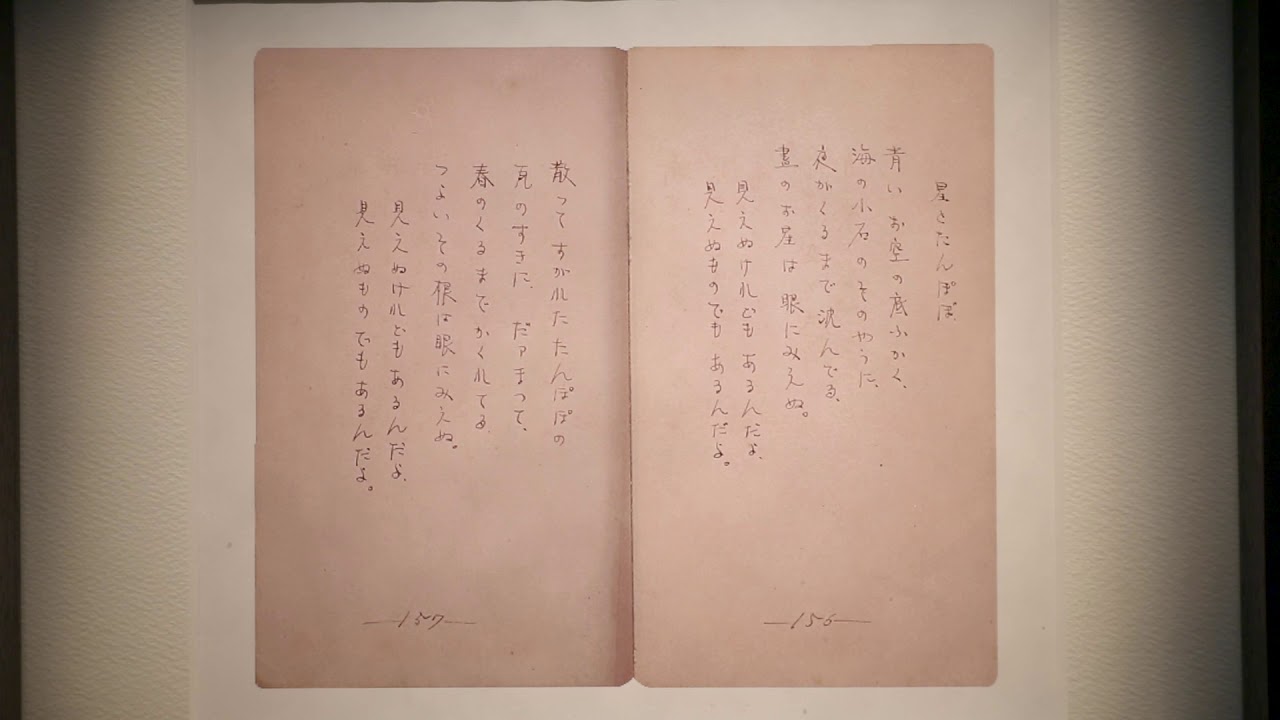 星とたんぽぽ
青いお空の底ふかく、
海の小石のそのやうに、
夜がくるまで沈んでる、
晝のお星は眼にみえぬ。
見えぬけれどもあるんだよ、
見えぬものでもあるんだよ。
—156—
散つてすがれたたんぽぽの
瓦のすきに、だァまつて、
春のくるまでかくれてる、
つよいその根は眼にみえぬ。
見えぬけれどもあるんだよ、
見えぬものでもあるんだよ。
—157—